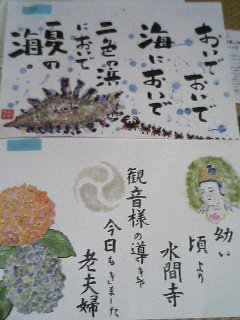 おいで おいで
海においで
二色の浜
においで
夏の
海。
幼い
頃より
水間寺
観音様の導きや
今日もきました
老夫婦